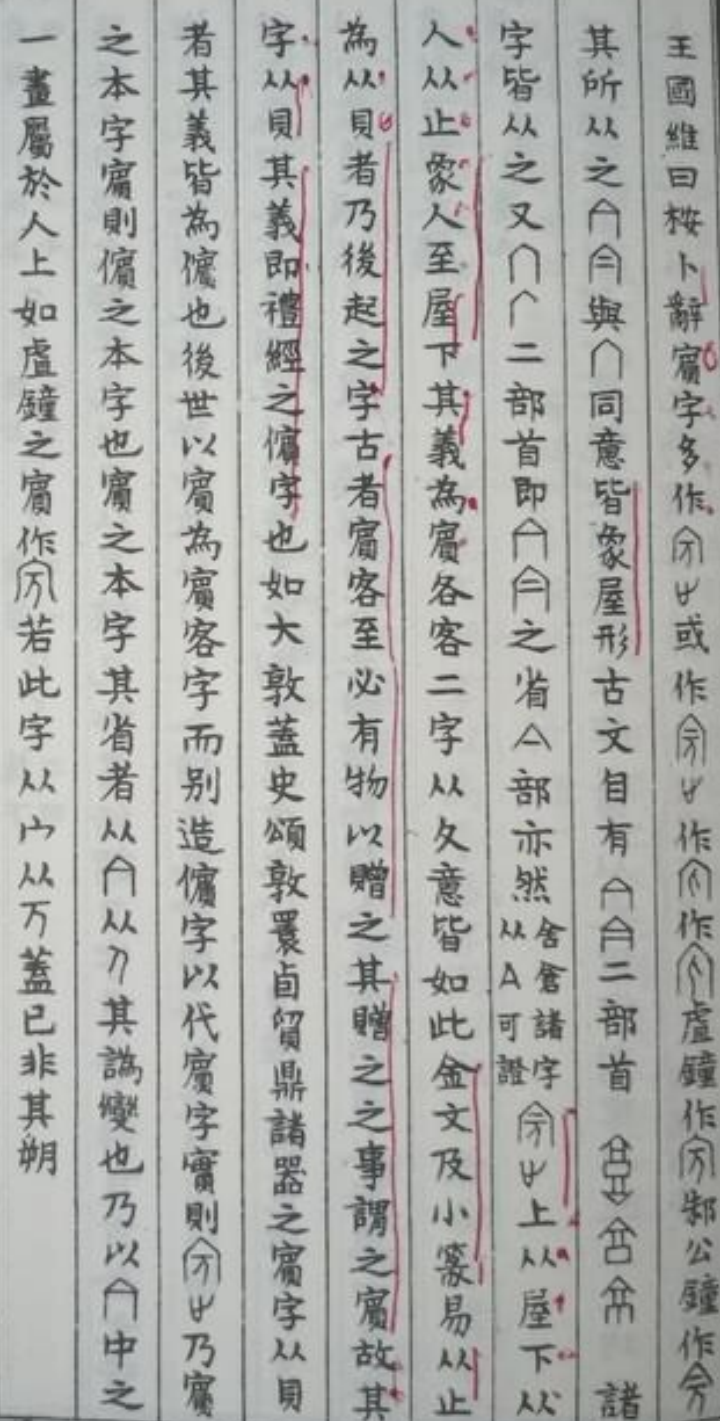 王國維曰桉卜辭賓字多作或作作作虘鐘作邾公鐘作
其所从之與同意皆象屋形古文自有二部首諸
字皆从之又冂二部首即之省亼部亦然舍倉諸字从亼可證上从屋下从
人从止象人至屋下其義為賓各客二字从夂意皆如此金文及小篆易从止
為从貝者乃後起之字古者賓客至必有物以贈之其贈之之事謂之賓故其
字从貝其義即禮經之儐字也如大敦蓋史頌敦睘卣貿鼎諸器之賓字从貝
者其義皆為儐也後世以賓為賓客字而别造儐字以代賓字實則乃賓
之本字賓則儐之本字也賓之本字其省者从从其譌變也乃以中之
一畫屬於人上如虘鐘之賓作若此字从宀从万蓋已非其朔